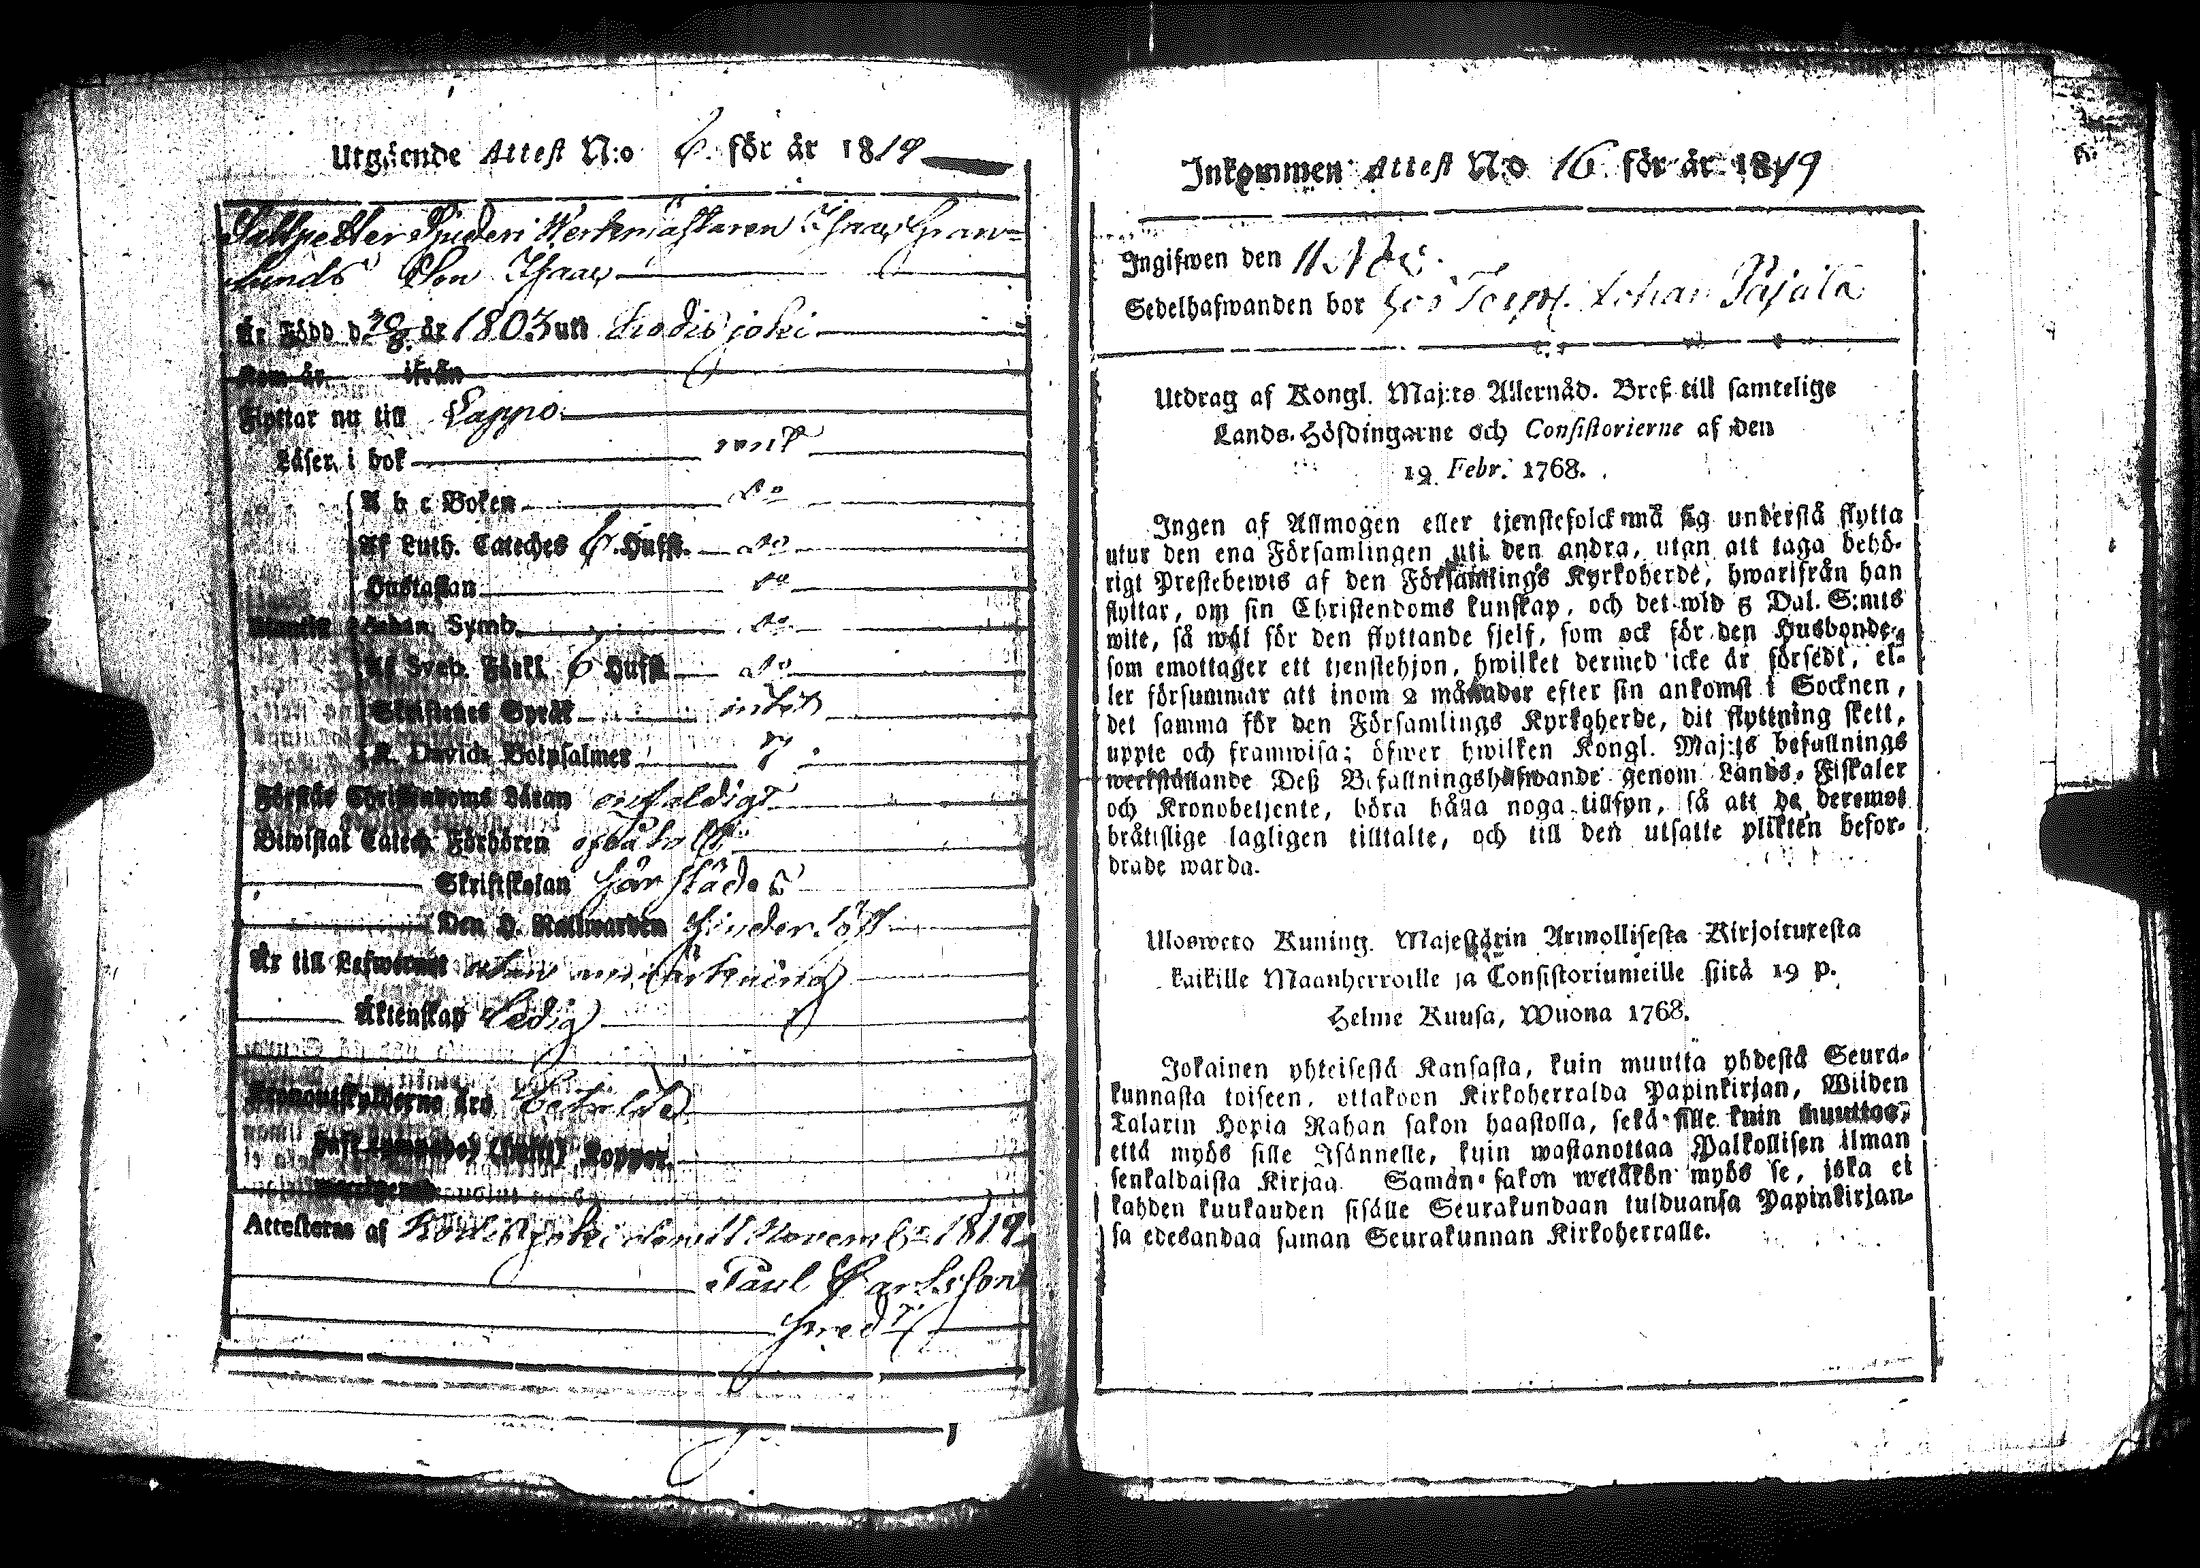 Utgående Attest N:o 6. för år 1819
Sallpetter Siuderi Werkmästaren Isaac Gran-
lunds Son Isaac
Är Född d. 29/8 år 1803 uti
Kom år ifrån
Flyttar nu till Lappo
Läser i bok rent
A b c Boken do
Af Luth. Cateches 6. Hufst. do
Hustaflan do
Athan. Symb. do
Af Sveb. Förkl. 6 Hufst. do
Skriftenes Språk intet
K. Davids Botpsalmer 7.
Förstår Christendoms Läran enfaldigt
Biwistat Catech. Förhören
Skriftskolan härstädes
Den H. Nattwarden
Är till Lefwernet utan anmärkning
Äktenskap Ledig
Kronoutskylderne äro Betalde
Koppor.
Attesteras af Kortesjoki den 11 Novemb. 1819
Paul
Inkommen Attest N:o 16 för år 1819
Ingifwen den
Sedelhafwanden bor hos Torp. Johan Pajala
Utdrag af Kongl. Maj:ts Allernåd. Bref till samtelige
Lands-Höfdingarne och Consistorierne af den
19 Febr. 1768.
Ingen af Allmogen eller tjenstefolck må sig understå flytta
utur den ena Församlingen uti den andra, utan att taga behö-
rigt Prestebewis af den Församlings Kyrkoherde, hwarifrån han
flyttar, om sin Christendoms kunskap, och det wid 5 Dal. S:mts
wite, så wäl för den flyttande sjelf, som ock för den Husbonde,
som emottager ett tjenstehjon, hwilket dermed icke är försedt, el-
ler försummar att inom 2 månader efter sin ankomst i Socknen,
det samma för den Församlings Kyrkoherde, dit flyttning skett,
uppte och framwisa; öfwer hwilken Kongl. Maj:ts befallnings
werkställande Deß Befallningshafwande genom Lands-Fiskaler
och Kronobetjente, böra hålla noga tillsyn, så att de deremot
bråtislige lagligen tilltalte, och till den utsatte plikten befor-
drade warda.
Uloswero Kuning. Majestärin Armollisesta Kirjoituresta
kaikille Maanherroille ja Consistoriumeille siitä 19 p.
Helme Kuusa, Wuona 1768.
Jokainen yhteisestä Kansasta, kuin muutta yhdestä Seura-
kunnasta toiseen, ottakoon Kirkoherralda Papinkirjan, Wiiden
Talarin Hopia Rahan sakon haastolla, sekä sille kuin muuttaa,
että myös sille Isännelle, kuin wastanottaa Palkollisen ilman
senkaldaista Kirjaa. Samän sakon wetäkön myös se, joka ei
kahden kuukauden sisälle Seurakundaan tulduansa Papinkirjan-
sa edesandaa saman Seurakunnan Kirkoherralle.